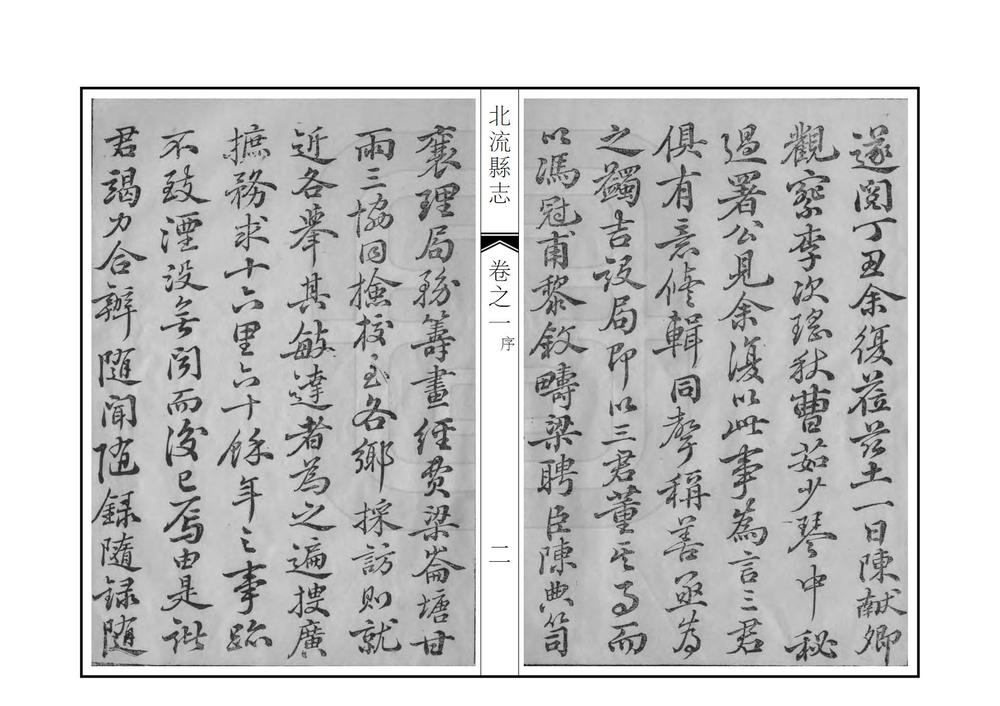 遂閱丁丑余復蒞茲土一日陳献卿
觀察李次瑤秋曹茹少琴中秘
過署公見余復以此事為言三君
俱有意修輯同聲稱善亟為
之蠲吉設局即以三君董其事而
以馮冠甫黎敘疇梁聘臣陳典笥
北流縣志
卷之一
序
二
襄理局務籌畫經費梁崙塘甘
雨三協同檢校至各鄉採訪則就
近各舉其敏達者為之遍搜廣
摭務求十六里六十餘年之事跡
不致湮没無聞而後已焉由是諸
君竭力合辦隨聞随録隨録随